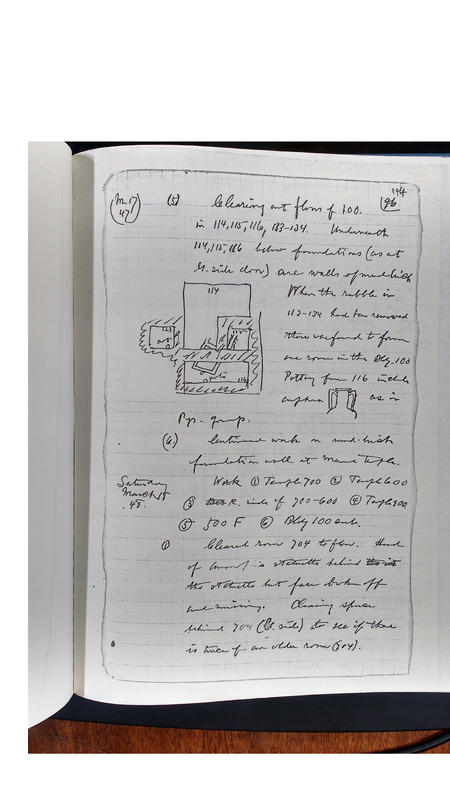 194
96
(M. 17
47)
(5) Clearing out floors of 100.
in 114, 115, 116, 133-134. Underneath
114, 115, 116 below foundations (as at
side door) are walls of mud brick
When the rubble in
133-134 had been removed
there was found to form
one room in the Bldg. 100
Pottery from 116 includes
as in
114
116
Pyr. group.
(6) Continued work on mud-brick
foundation wall at temple.
Saturday
March 18
48.
Work ① Temple 700 ② Temple 600
③ R. side of 700-600 ④ Temple 900
⑤ 500 F ⑥ Bldg 100
① Cleared room 704 to floor. Head
of statuette behind
the statuette but face broken off
and missing. Clearing space
behind 704 (side) to see if there
is trace of an older room (904).